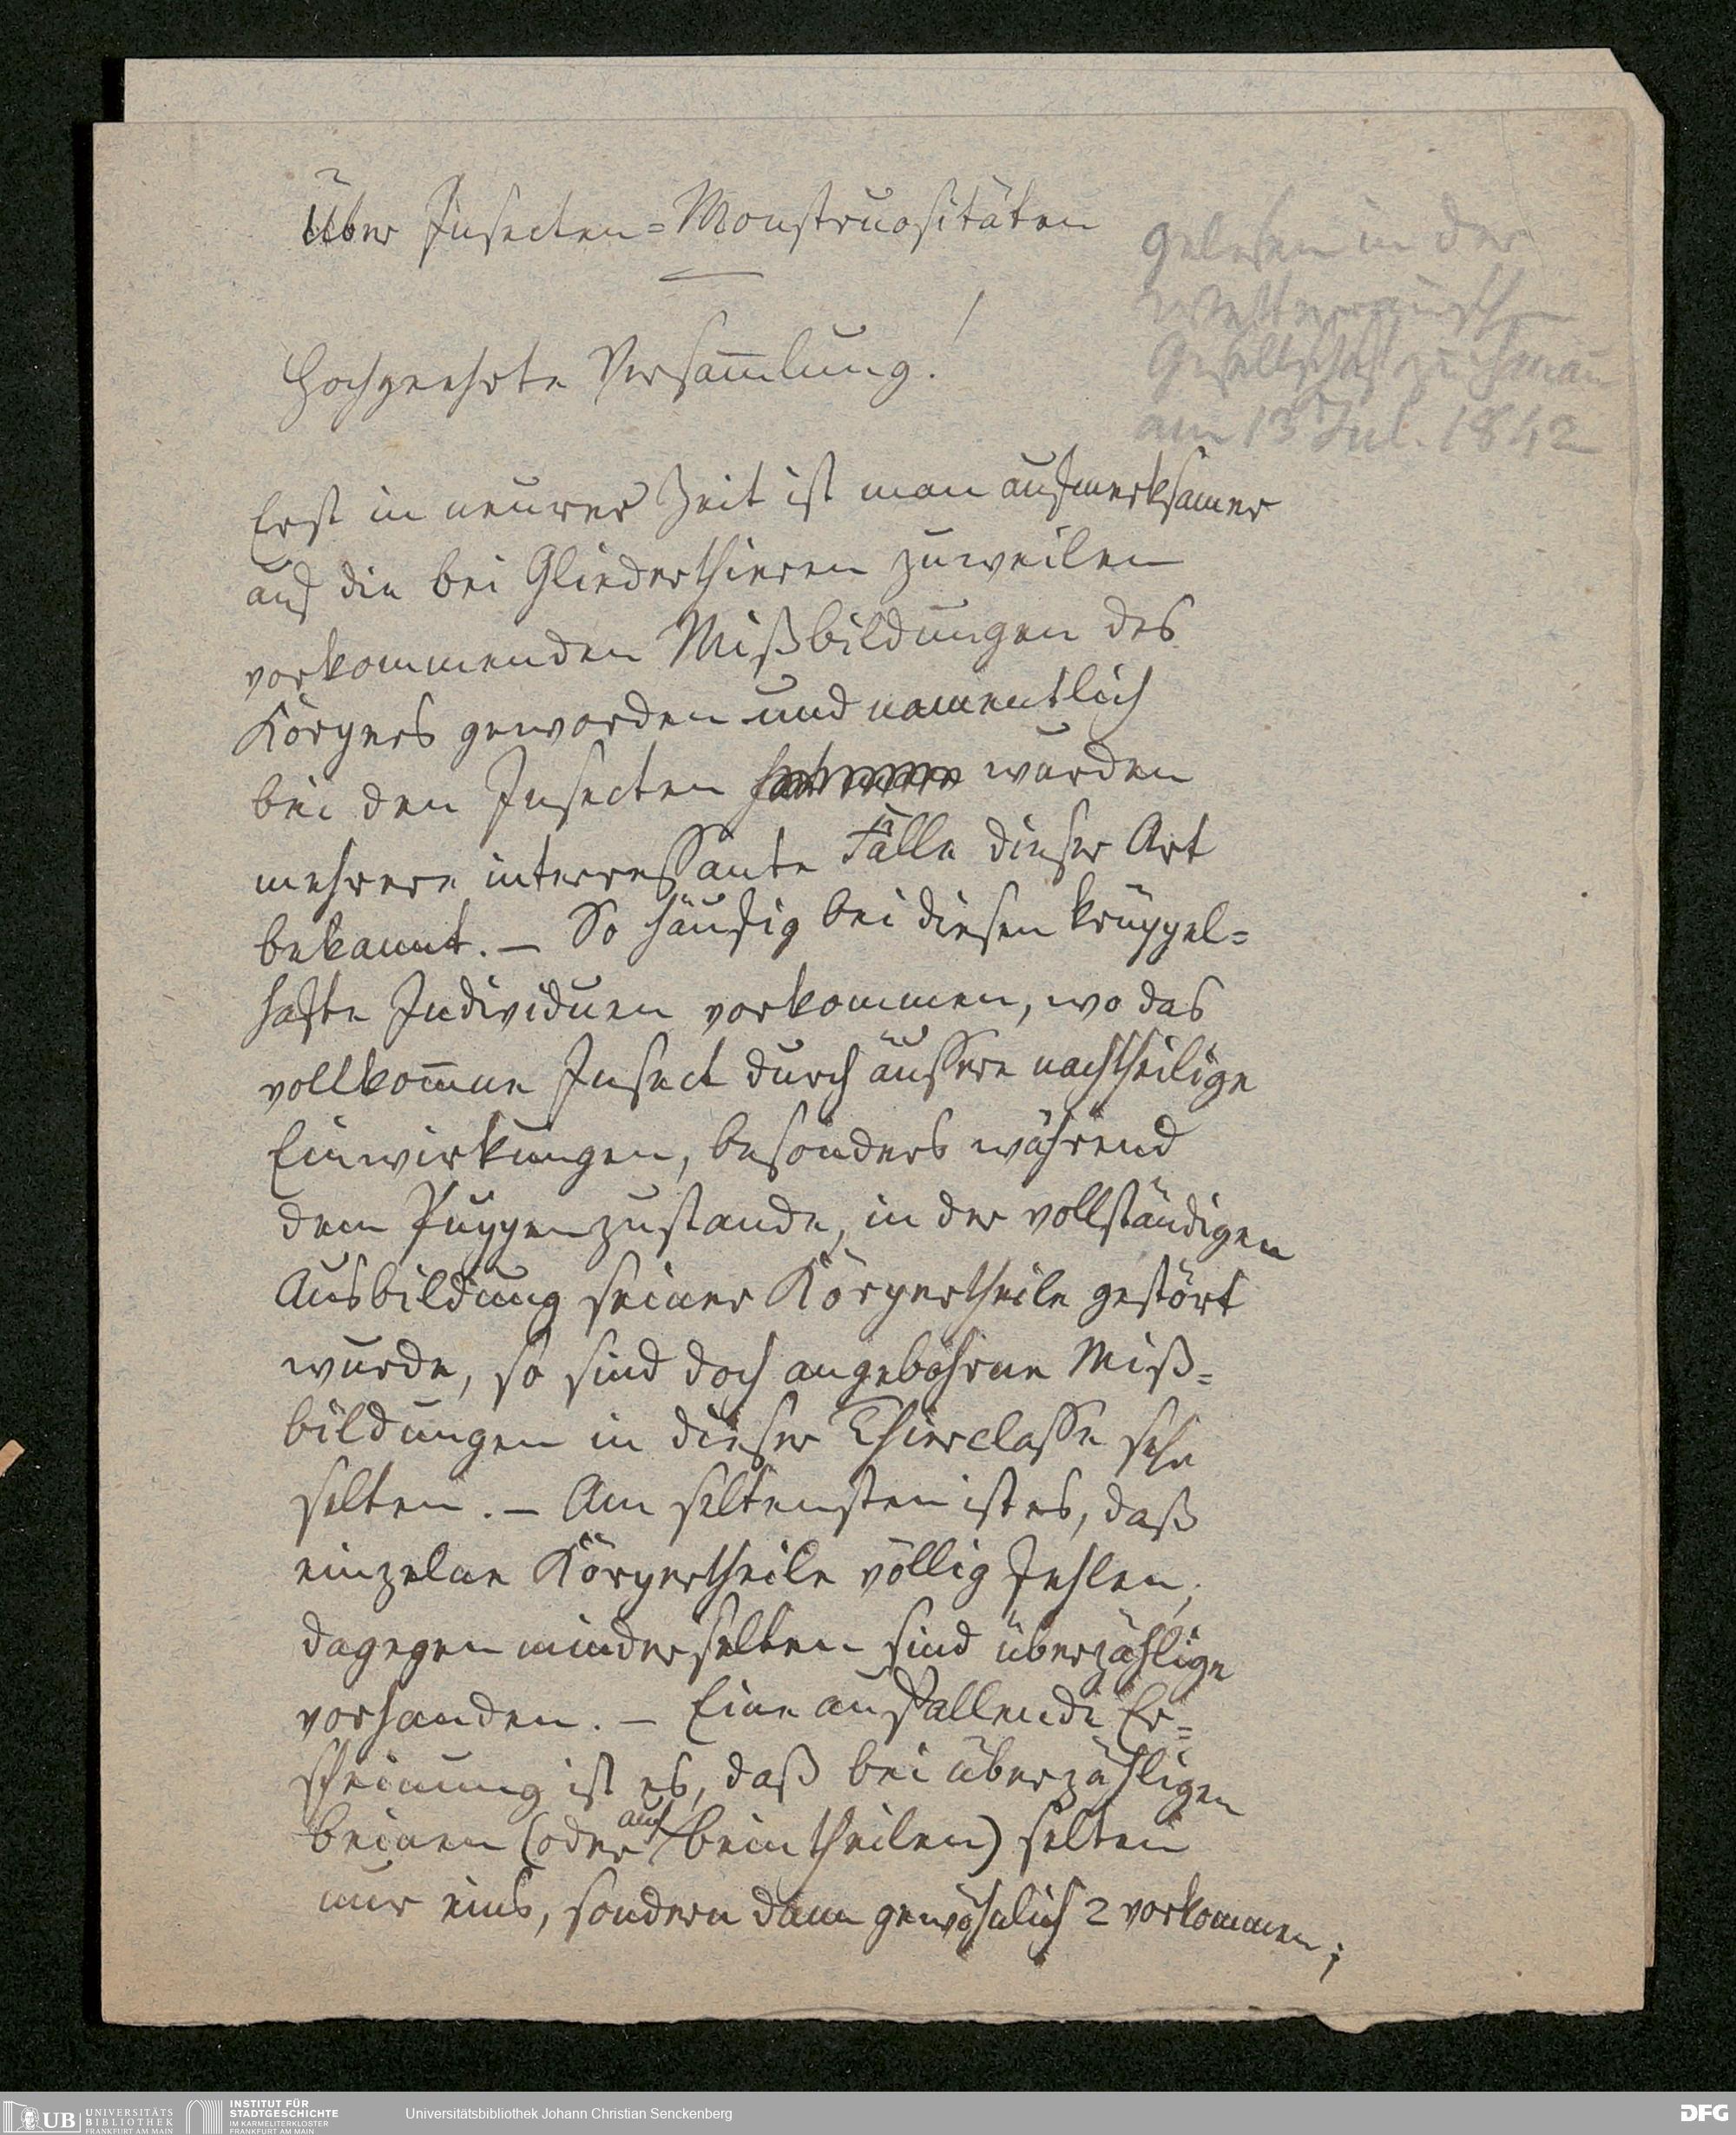 Über Insecten=Monstruositäten
gelesen in der
Wetterauisch
Gesellschaft zu Hanau
am 13 Jul. 1842
Hochgeehrte Versam̄lung!
Erst in neurer Zeit ist man aufmerksamer
auf die bei Gliederthieren zuweilen
vorkommenden Mißbildungen des
Körpers geworden und namentlich
bei den Insecten wurden
mehrere interressante Fälle dieser Art
bekannt. – So häufig bei diesen krüppel=
hafte Individuen vorkommen, wo das
vollkom̄ne Insect durch äussere nachtheilige
Einwirkungen, besonders während
dem Puppenzustande, in der vollständigen
Ausbildung seiner Körpertheile gestört
wurde, so sind doch angebohrne Miß=
bildungen in dieser Thierclasse sehr
selten. – Am seltensten ist es, daß
einzelne Körpertheile völlig fehlen,
dagegen minder selten sind überzählige
vorhanden. – Eine auffallende Er=
scheinung ist es, daß bei überzähligen
beinen (oder auch beintheilen) selten
nur eins, sondern dann gewöhnlich 2 vorkommen;
UB UNIVERSITÄTS
BIBLIOTHEK
FRANKFURT AM MAIN
INSTITUT FÜR
STADTGESCHICHTE
IM KARMELITERKLOSTER
FRANKFURT AM MAIN
Universitätsbibliothek Johann Christian Senckenberg
DFG